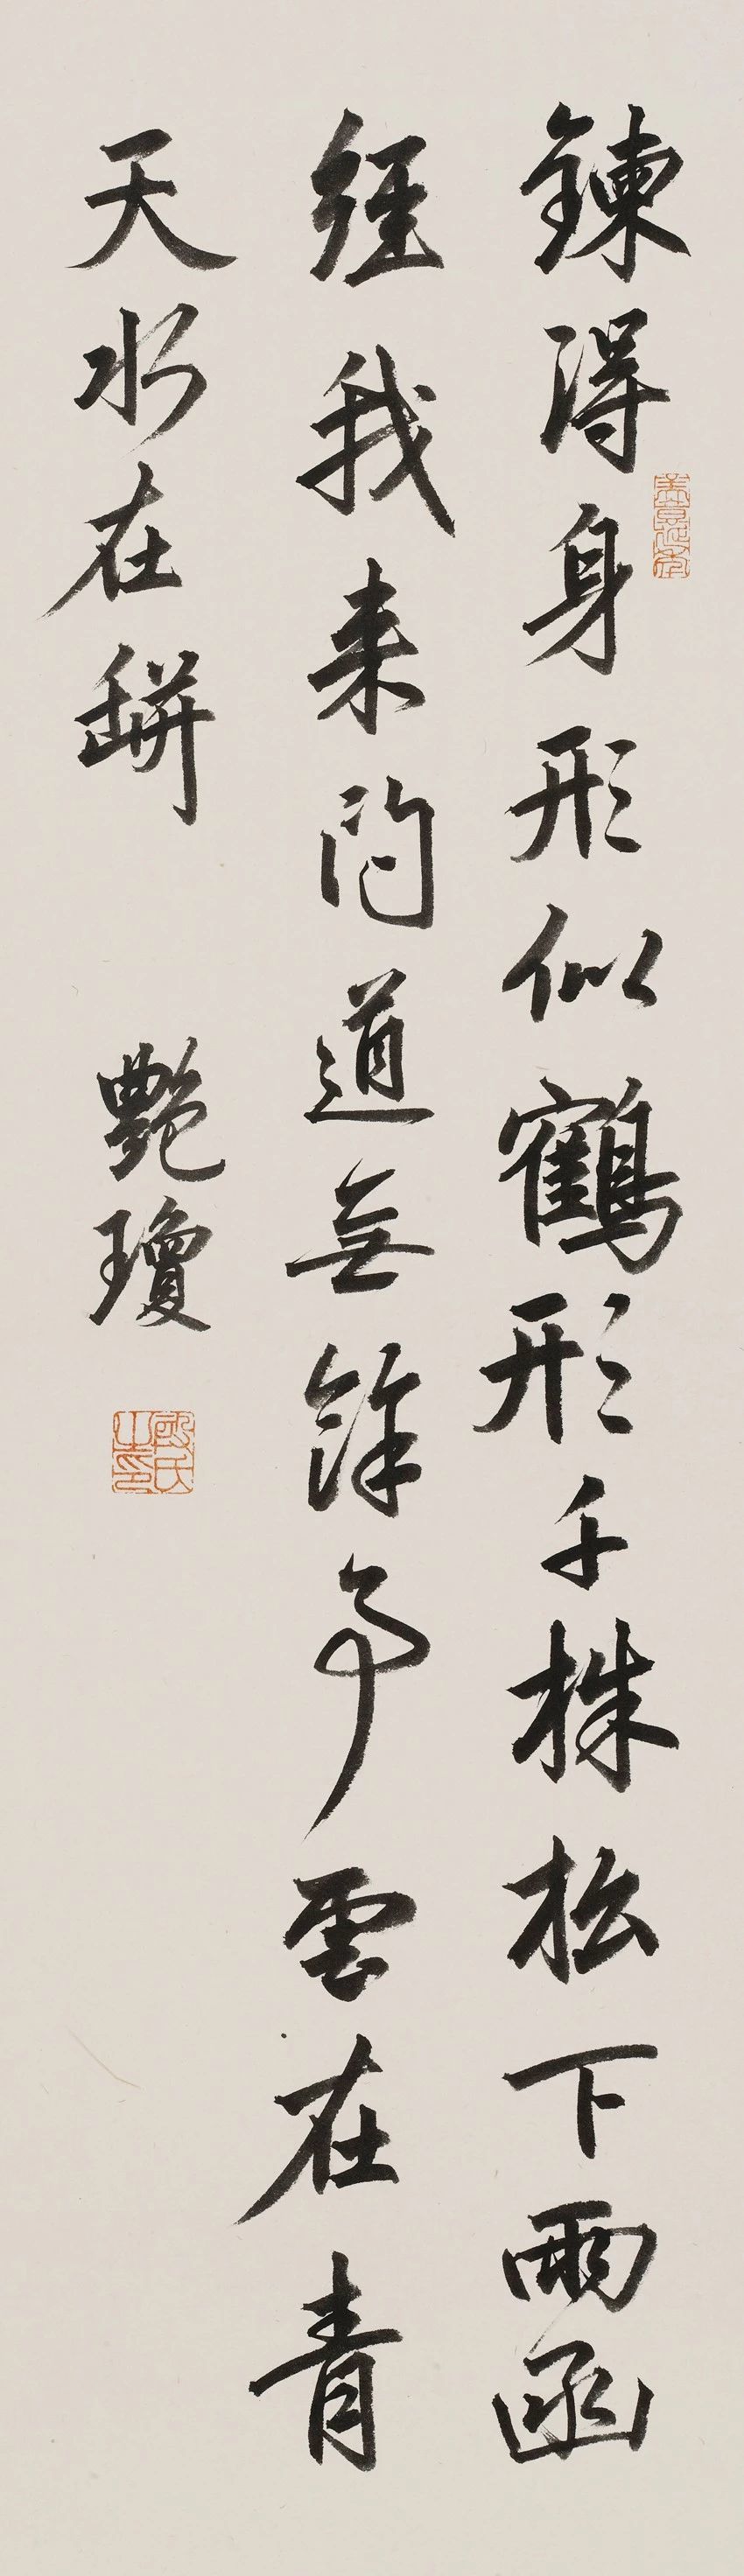 鍊得身形似鶴形千株松下兩函
經我來問道無餘事雲在青
天水在缾
艷瓊